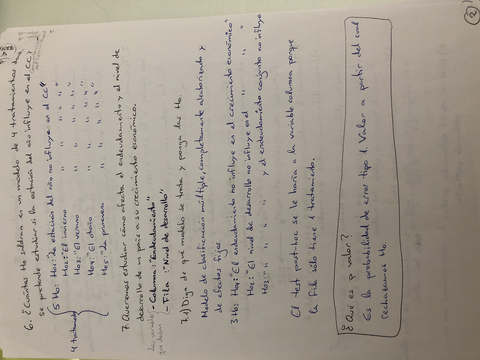 6. ¿Cuántas Ho saldrían en un modelo de 4 tratamientos que
se pretende estudiar si la estación del año influye en el CC?
5 Ho: Ho1: La estación del año no influye en el CC"
Ho2: "El invierno " " " " "
Ho3: "El verano " " " " "
Ho4: "El otoño " " " " "
Ho5: "La primavera " " " " "
4 tratamientos
7. Queremos estudiar cómo afecta el endeudamiento y el nivel de
desarrollo de un país a su crecimiento económico.
- Columna: "Endeudamiento"
- Fila: "Nivel de desarrollo"
7.1) Diga de qué modelo se trata y ponga las Ho.
Modelo de clasificación múltiple, completamente aleatorizado y
de efectos fijos
3 Ho: Ho1: "El endeudamiento no influye en el crecimiento económico"
Ho2: "El nivel de desarrollo no influye en el " "
Ho3: " " " " " y el endeudamiento conjunto no influye
El test post-hoc se le haría a la variable columna porque
la fila sólo tiene 1 tratamiento.
¿Qué es p valor?
Es la probabilidad de error tipo 1. Valor a partir del cual
rechazamos Ho.
2